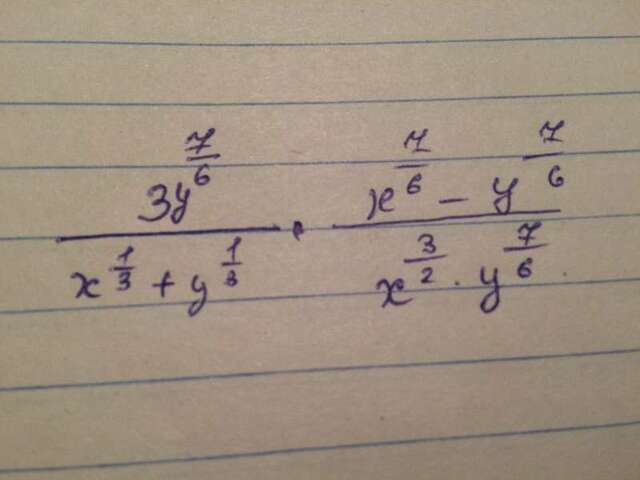 3y^{7/6} / (x^{1/3} + y^{1/3}) · (x^{7/6} − y^{7/6}) / (x^{3/2} · y^{7/6})